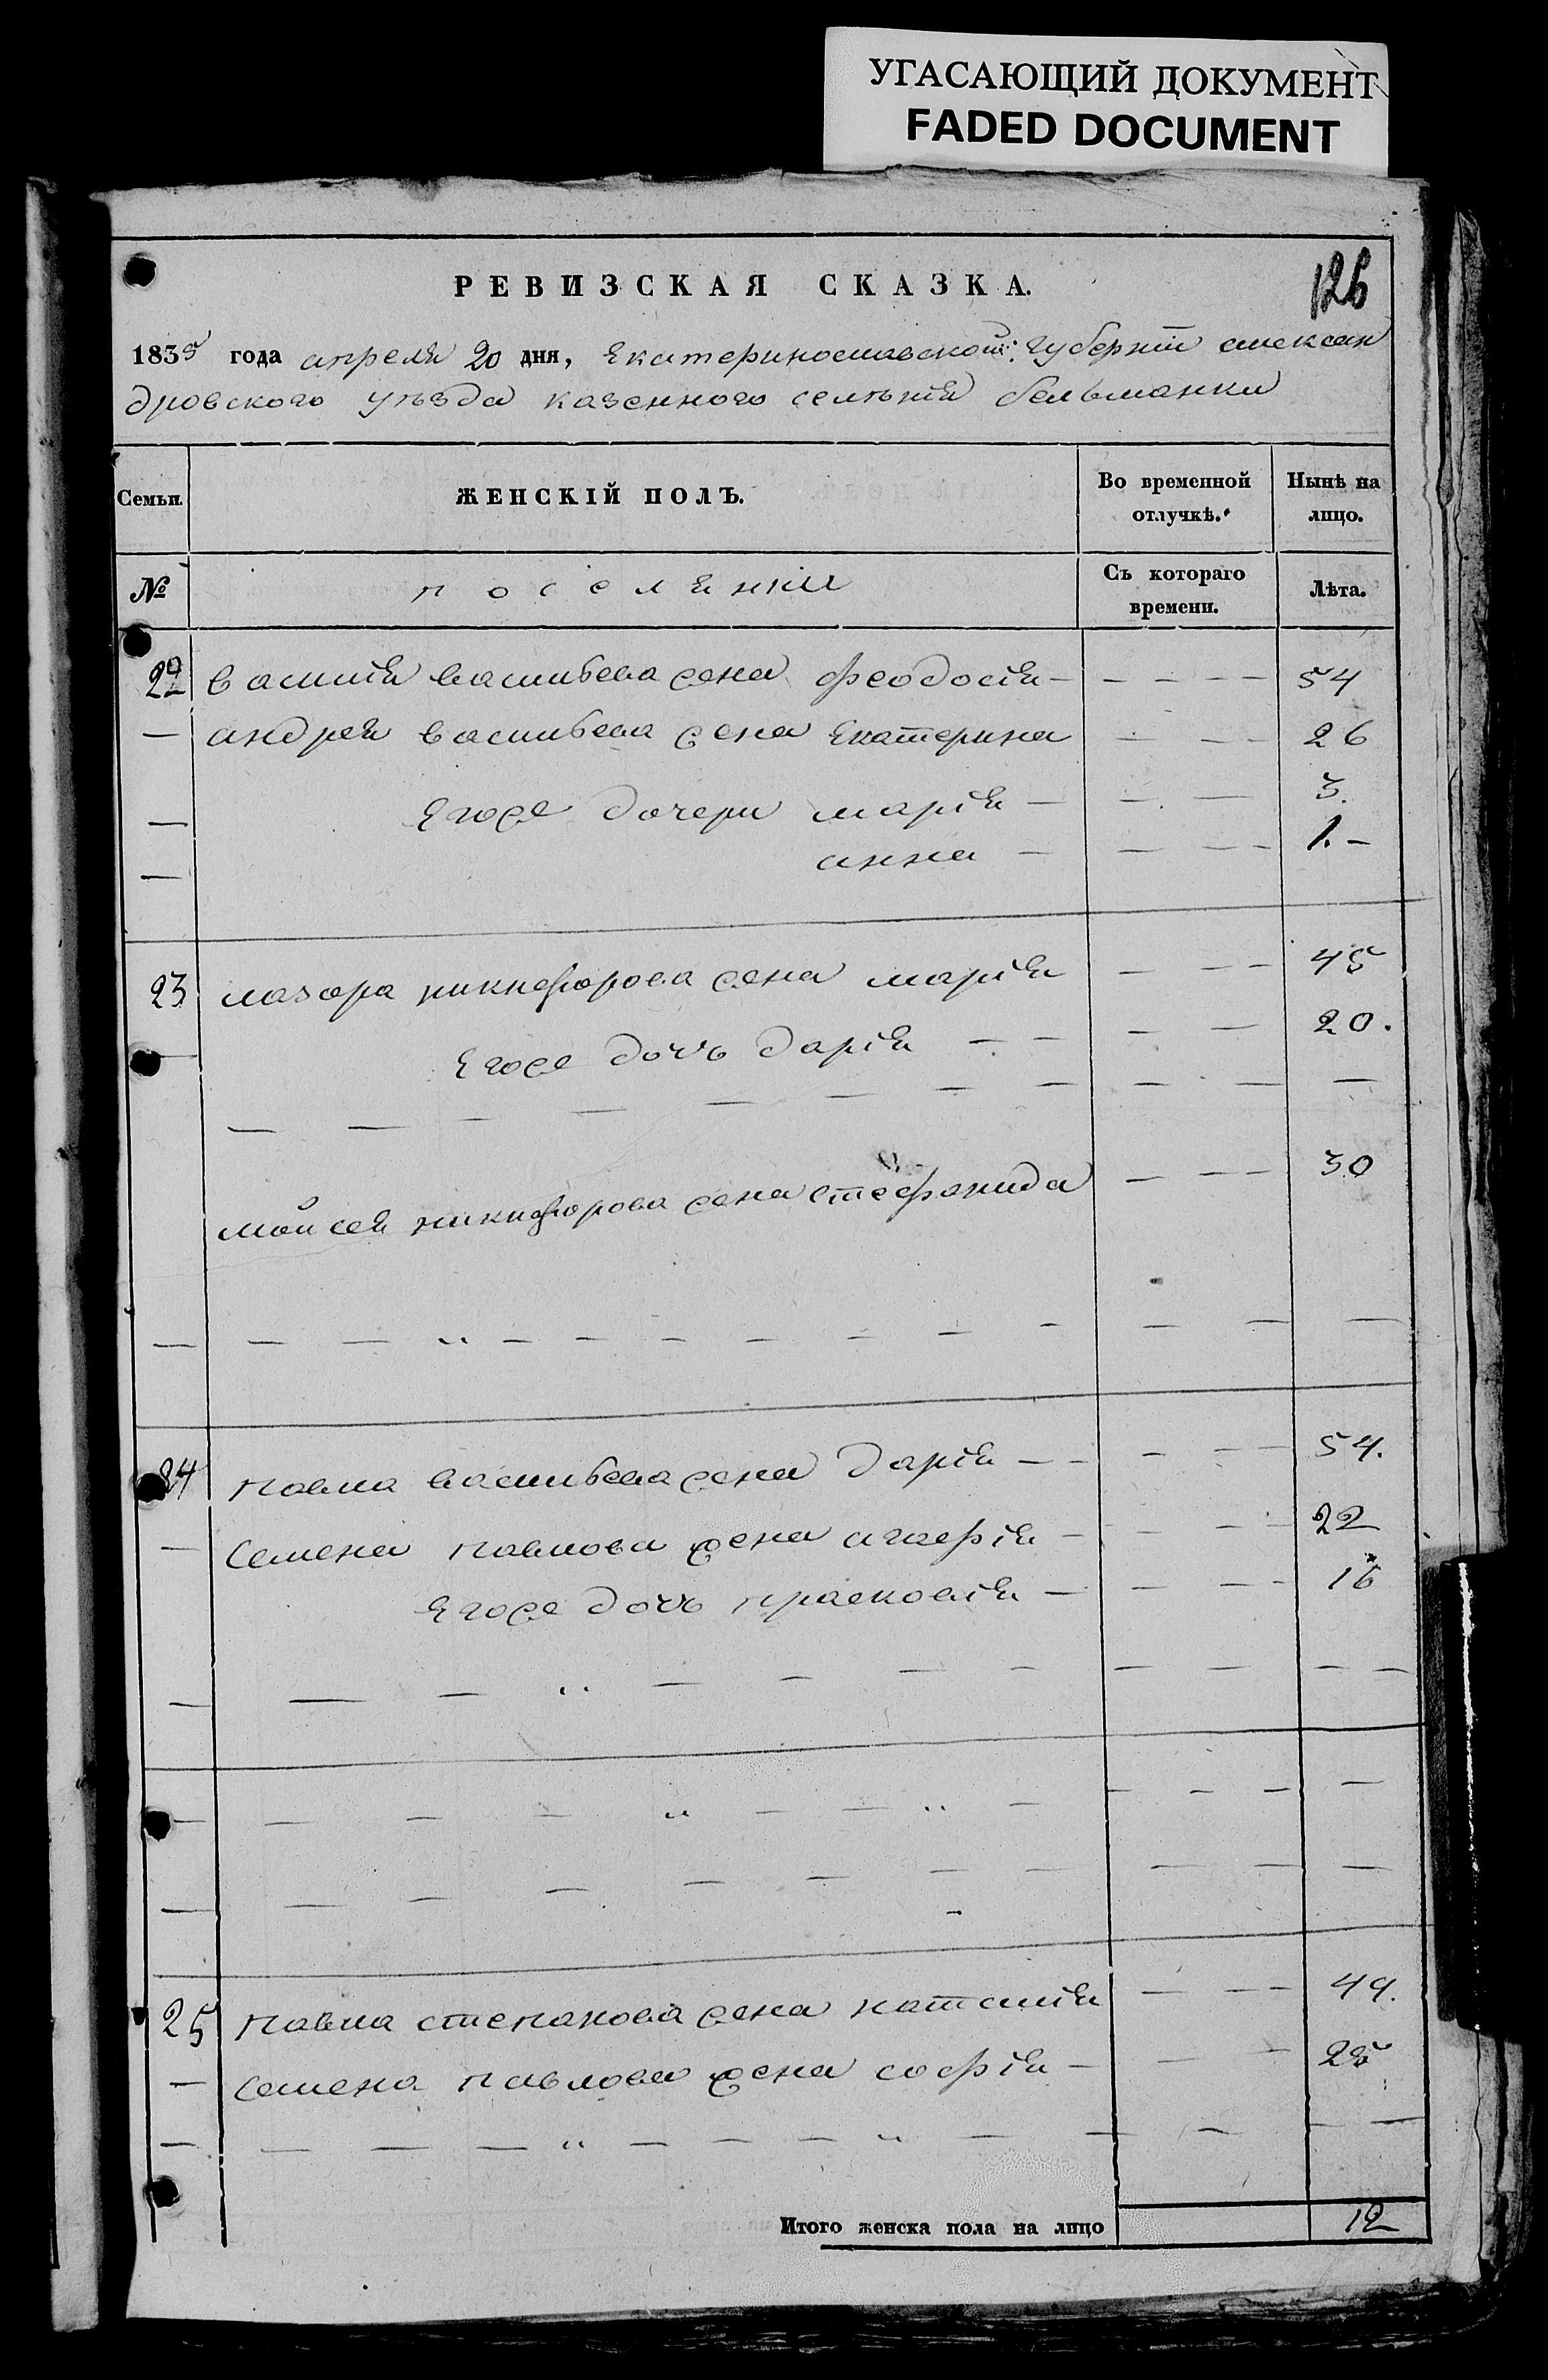 УГАСАЮЩИЙ ДОКУМЕНТ
FADED DOCUMENT
126
РЕВИЗСКАЯ СКАЗКА.
1835 года апреля 20 дня, Екатеринославской: губернїи алексан
дровского уѣзда казенного селѣнїя бельманки
Семьи. ЖЕНСКІЙ ПОЛЪ. Во временной отлучкѣ. Нынѣ на лицо.
№ поселянки Съ котораго времени. Лѣта.
22 василїя васильева жена феодосїя — — — — — 54
— андрея васильева жена Екатерина — — — 26
— Егоже дочери марїя — — — 3.
— анна — — — — 1. —
23 лазора никифорова жена марїя — — — 45
— Егоже дочь дарїя — — — — 20.
— — — — — — — — — —
мойсея никифорова жена стефанида — — — 30
— — — „ — — — — — — — — — —
24 павла васильева жена дарїя — — — — — 54.
— семена павлова жена агафїя — — — — 22
Егоже дочь прасковїя — — — — 16
— — — „ — — — — — — — —
— — — — „ — — „ — — — — —
— — — — — — — — — — —
25 павла степанова жена наталїя — — — 49.
— семена павлова жена софїя — — — 25
— — — — „ — — — „ — — — — —
Итого женска пола на лицо 12